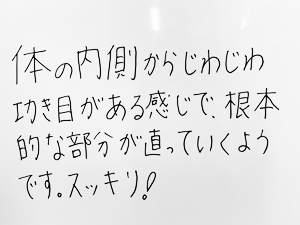 体の内側からじわじわ
功き目がある感じで、根本
的な部分が直っていくよう
です。スッキリ!